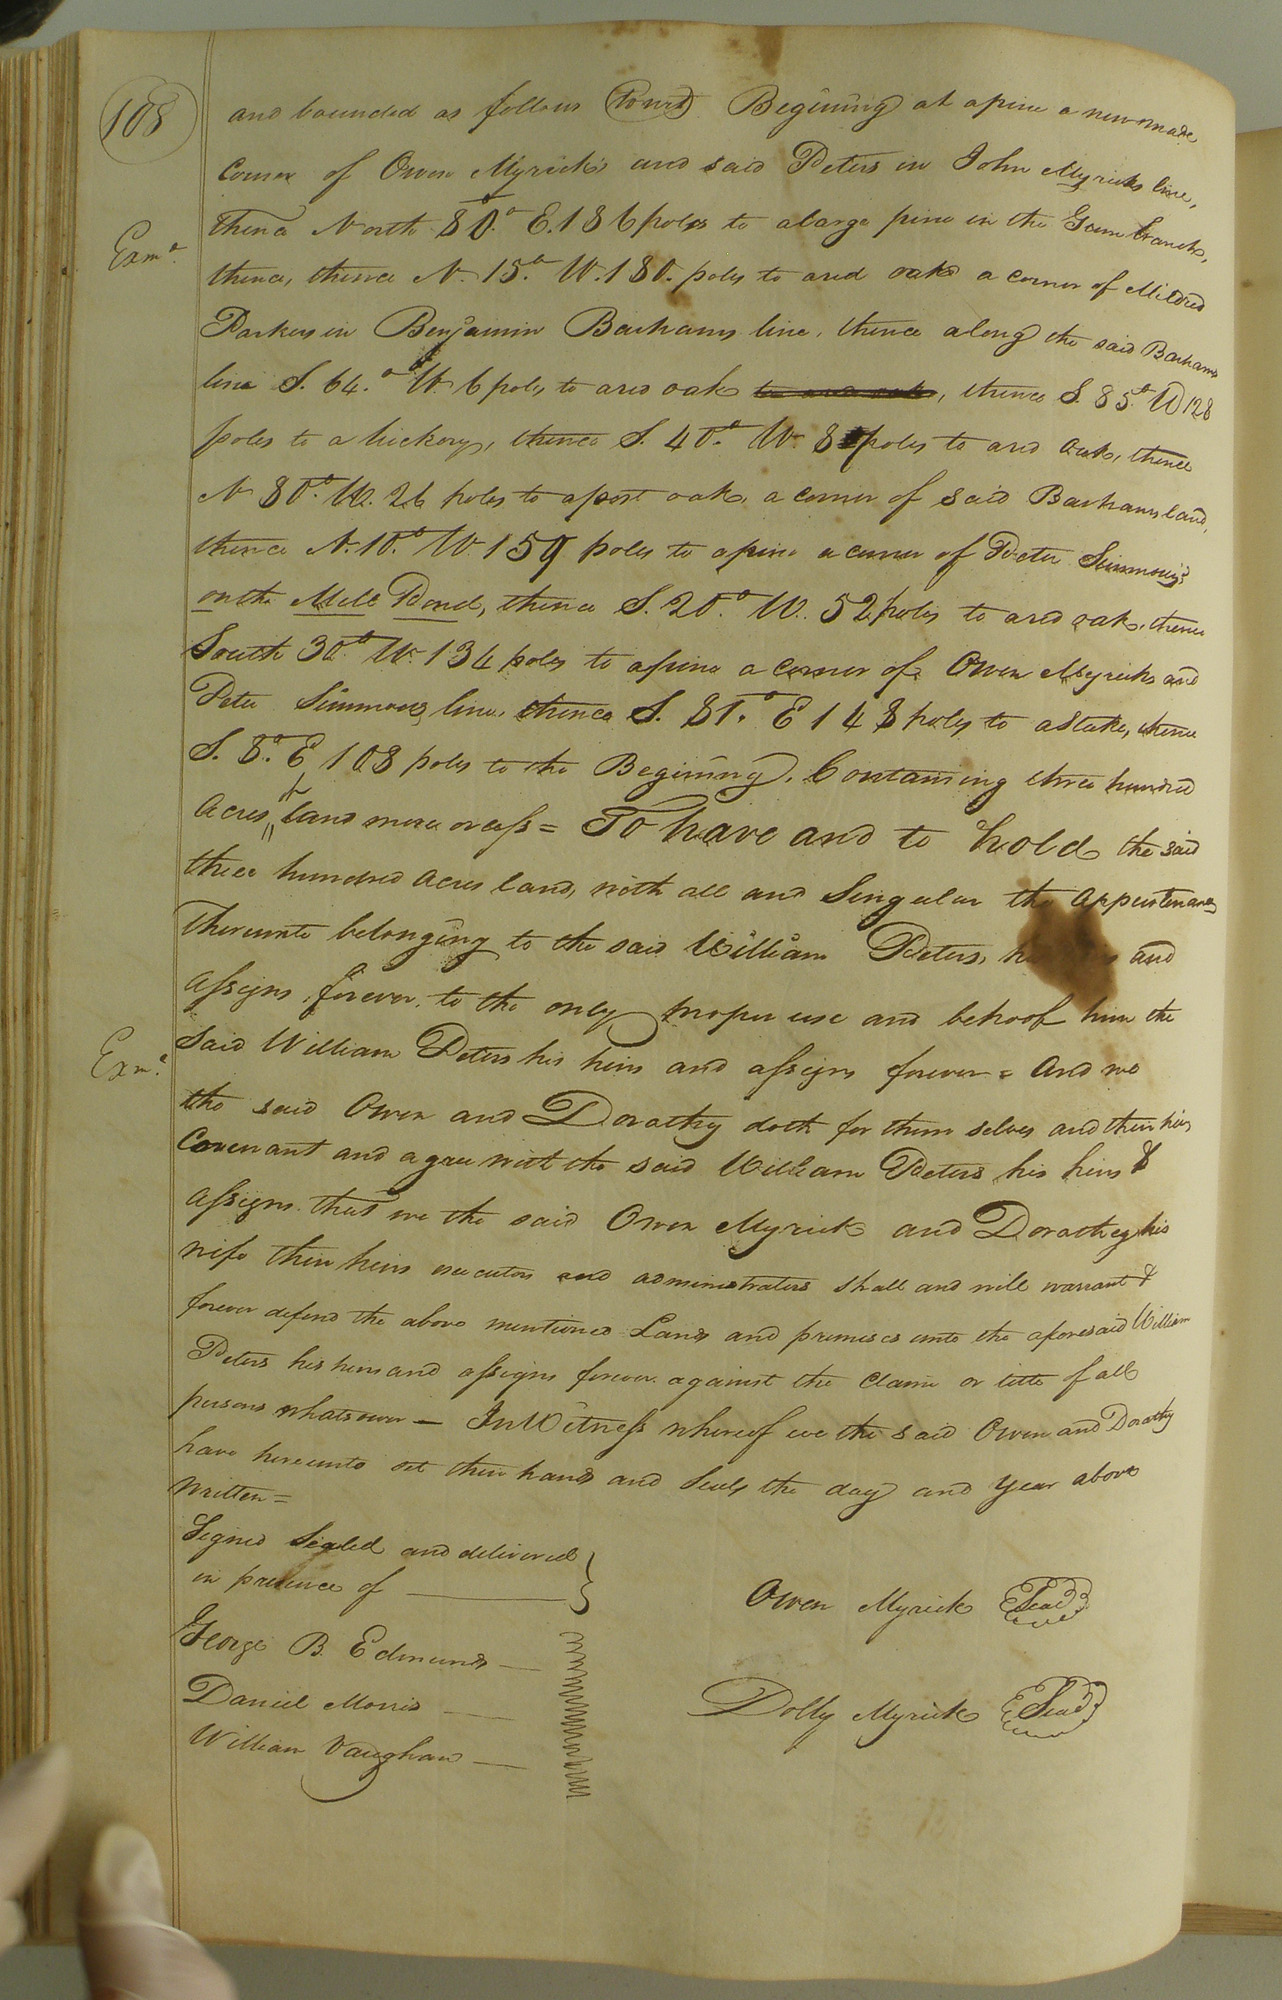 108
and bounded as follows (Towit) Begining at a pine a new made
Corner of Owen Myricks and said Peters in John Myricks line,
Exm.d
thence North 80.° E. 186 poles to a large pine in the Gum branch,
thence, thence N. 15.° W. 180. poles to a red oak a corner of Mildred
Parkers in Benjamin Barhams line, thence along the said Barhams
line S. 64.° W. 6 poles to a red oak to a red oak, thence S. 85.° W 128
poles to a hickory, thence S. 40.° W. 8 poles to a red oak, thence
N 80.° W. 26 poles to a post oak, a corner of said Barhams land,
thence N. 10.° W 159 poles to a pine a corner of Peter Simmons's
on the Mill Pond, thence S. 20.° W. 52 poles to a red oak, thence
South 30.° W. 134 poles to a pine a corner of Owen Myricks and
Peter Simmons line, thence S. 81.° E 148 poles to a Stake, thence
S. 8.° E 108 poles to the Begining, Containing three hundred
Acres of land more or less = To have and to hold the said
three hundred acres land, with all and Singular the appurtenances
Thereunto belonging to the said William Peters, and
assigns forever, to the only proper use and behoof him the
Exm.d
Said William Peters his heirs and assigns forever = And we
the said Owen and Dorathy doth for them selves and their heirs
Covenant and agree with the said William Peters his heirs &
assigns that we the said Owen Myrick and Dorathey his
wife their heirs executors and administrators shall and will warrant &
forever defend the above mentioned Lands and premises unto the aforesaid William
Peters his heirs and assigns forever against the Claim or title of all
persons whatsoever — In Witness whereof we the said Owen and Dorathy
have hereunto set their hands and Seals the day and year above
Written =
Signed Sealed and delivered
in presence of
Owen Myrick Seal
George B. Edmunds
Daniel Morris
Dolly Myrick Seal
William Vaughan